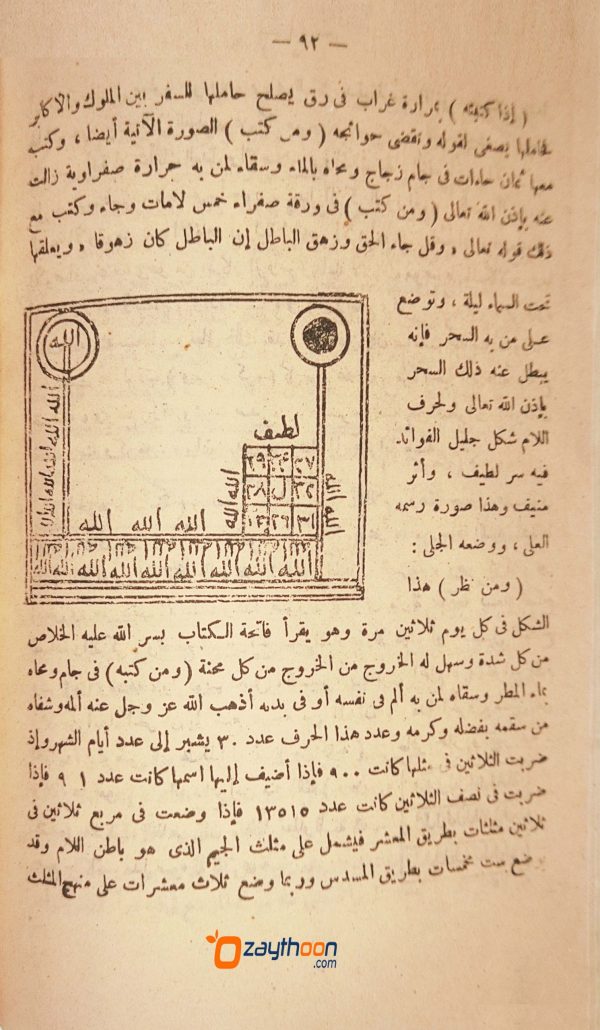 — ٩٢ —
( إذا كتبته ) بمرارة غراب فى رق يصلح حاملها للسفر بين الملوك والأكابر
فحاملها يصغى لقوله وتقضى حوائجه ( ومن كتب ) الصورة الآتية أيضا ، وكتب
معها ثمان حاءات فى جام زجاج ومحاه بالماء وسقاه لمن به حرارة صفراوية زالت
عنه بإذن الله تعالى ( ومن كتب ) فى ورقة صفراء خمس لامات وجاء وكتب مع
ذلك قوله تعالى ، وقل جاء الحق وزهق الباطل إن الباطل كان زهوقا ، ويعلقها
تحت السماء ليلة ، وتوضع
على من به السحر فإنه
يبطل عنه ذلك السحر
بإذن الله تعالى ولحرف
اللام شكل جليل الفوائد
فيه سر لطيف ، وأثر
منيف وهذا صورة رسمه
العلى ، ووضعه الجلى :
( ومن نظر ) هذا
الله
الله الله الله الله الله
لطيف
٢٧ ٣٤ ٢٩
٣٢ ل ٢٨
٣١ ٢٦
الله الله
الله الله
الله الله الله
الله الله الله الله الله الله الله الله
الشكل فى كل يوم ثلاثين مرة وهو يقرأ فاتحة الكتاب يسر الله عليه الخلاص
من كل شدة وسهل له الخروج من الخروج من كل محنة ( ومن كتبه ) فى جام ومحاه
بماء المطر وسقاه لمن به ألم فى نفسه أو فى بدنه أذهب الله عز وجل عنه ألمه وشفاه
من سقمه بفضله وكرمه وعدد هذا الحرف عدد ٣٠ يشير إلى عدد أيام الشهر وإذ
ضربت الثلاثين فى مثلها كانت ٩٠٠ فإذا أضيف إليها اسمها كانت عدد ٩١ فإذا
ضربت فى نصف الثلاثين كانت عدد ١٣٥١٥ فإذا وضعت فى مربع ثلاثين فى
ثلاثين مثلثات بطريق المعشر فيشمل على مثلث الجيم الذى هو باطن اللام وقد
ضع ست مخمسات بطريق المسدس وربما وضع ثلاث معشرات على منهج المثلث
zaythoon
.com